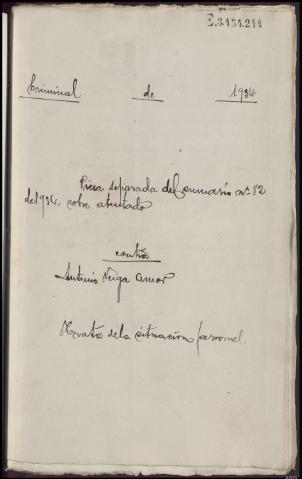 E.3.131.211
Criminal de 1934
Pieza separada del sumario nº 82
del 934, sobre atentado
contra
Antonio Veiga Amor
Rvatª de la situacion personal